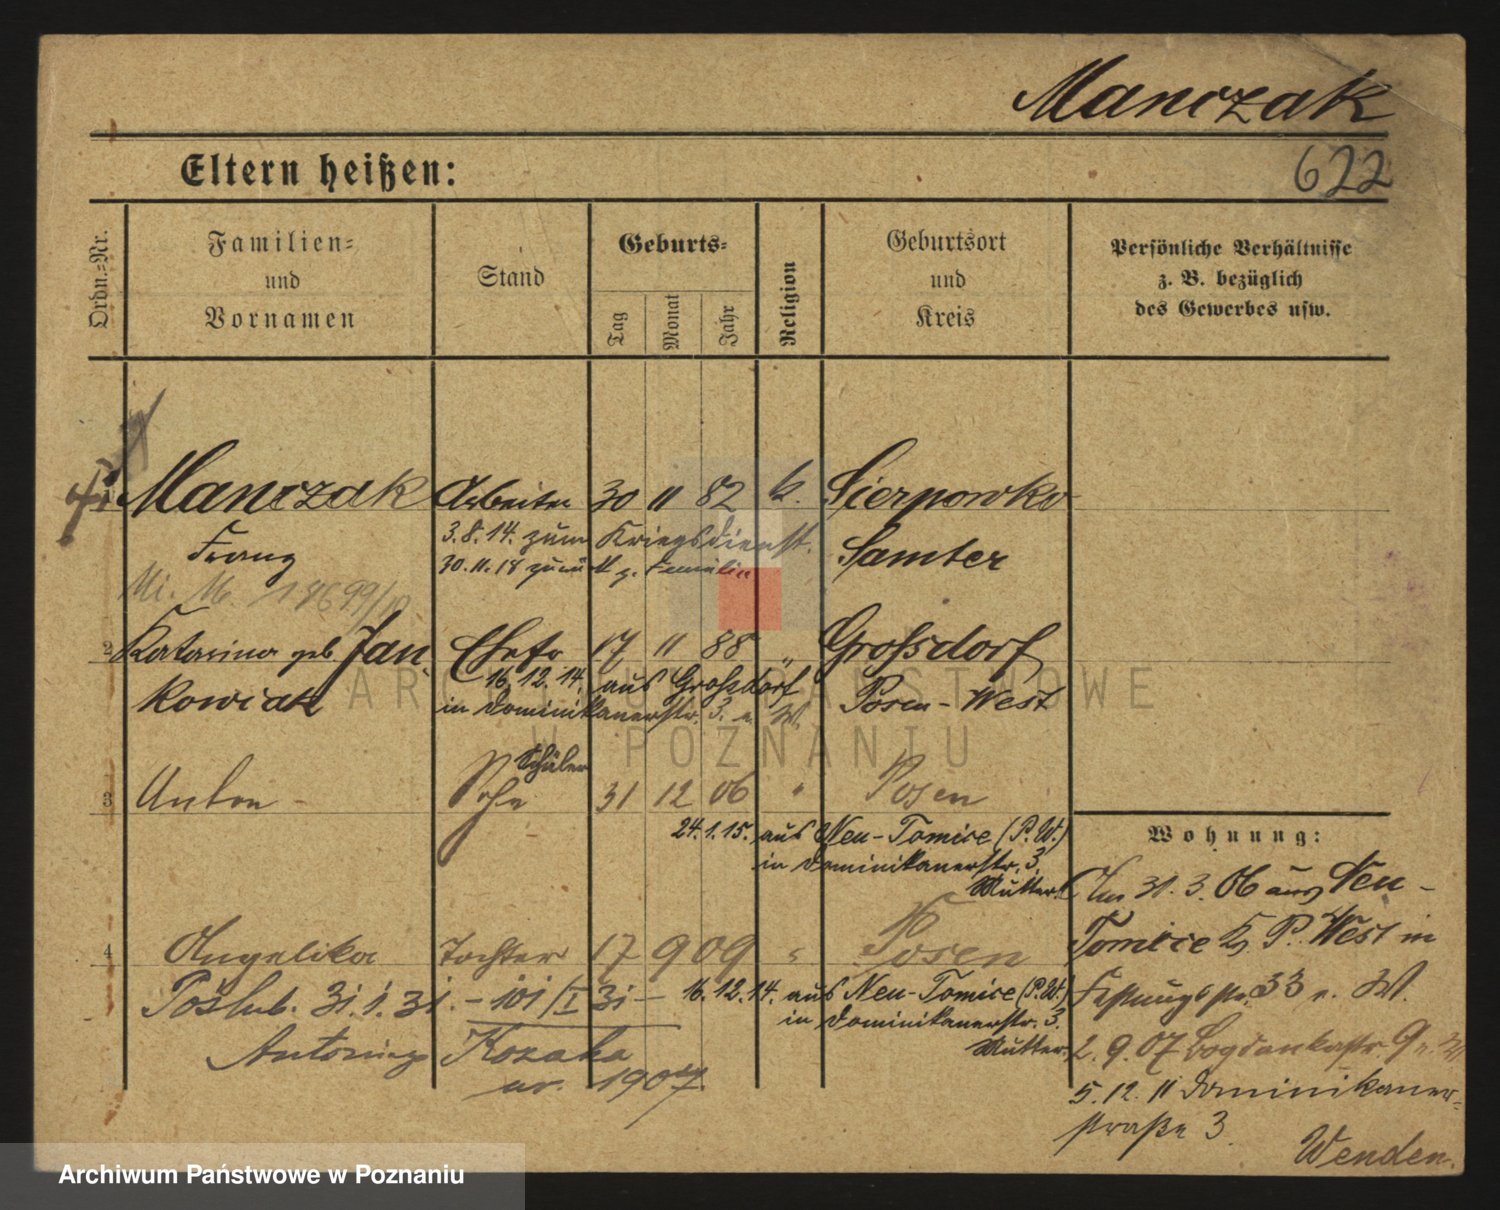 Manczak
622
Eltern heißen:
Ordn.=Nr.
Familien=
und
Vornamen
Stand
Geburts=
Tag
Monat
Jahr
Religion
Geburtsort
und
Kreis
Persönliche Verhältnisse
z. B. bezüglich
des Gewerbes usw.
1 Manczak Arbeiter 30 11 82 k. Sierpowko
Franz 3.8.14. zum Kriegsdienst. Samter
30.11.18 z. Familie
2 Katarina geb. Jan- Chefr 17 11 88 " Grossdorf
kowiak 16.12.14. aus Grossdorf Posen-West
in Dominikanerstr. 3. e. W.
Schüler
3 Anton - Sohn 31 12 06 " Posen
24.1.15. aus Neu-Tomice (P.W.)
in Dominikanerstr. 3.
Mutter.
4 Angelika Tochter 17 9 09 " Posen
Poślub. 31.1.31. - 101/I 31 - 16.12.14. aus Neu-Tomice (P.W.)
in Dominikanerstr. 3.
Mutter.
Kozaka
ur. 1907.
Wohnung:
Am 31.3.06 aus Neu-
Tomice K. P. West in
Festungsstr. 33 e. W.
2.9.07 Bogdankastr. 9 e. W
5.12.11 Dominikaner=
straße 3.
Wenden.
ARCHIWUM PAŃSTWOWE
W POZNANIU
Archiwum Państwowe w Poznaniu